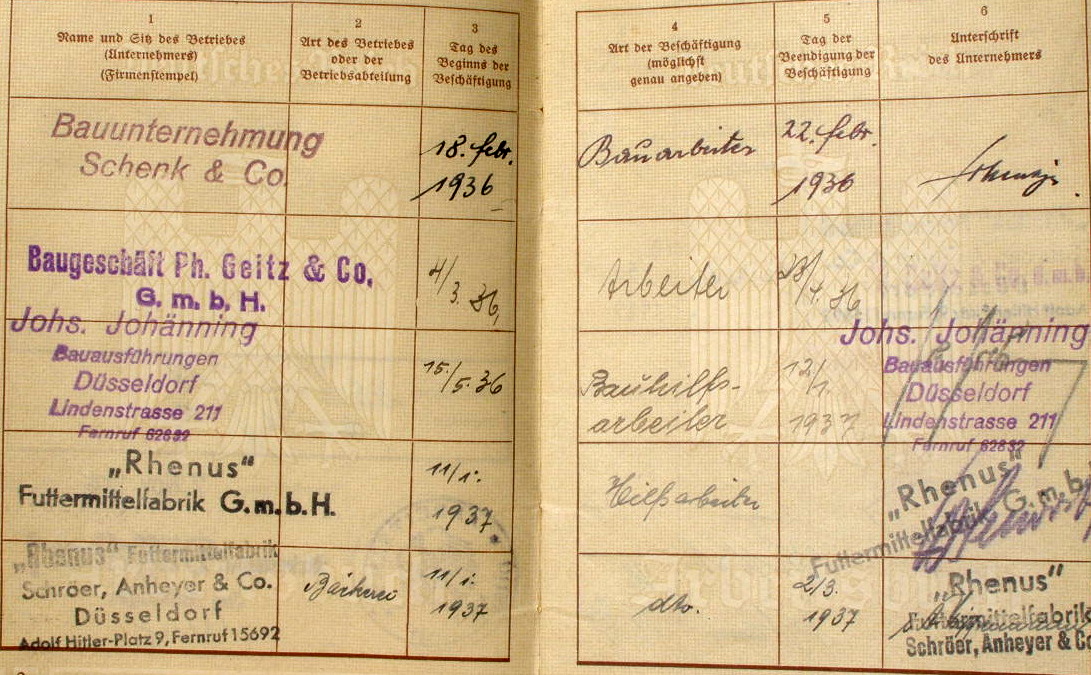 1
Name und Sitz des Betriebes
(Unternehmers)
(Firmenstempel)
2
Art des Betriebes
oder der
Betriebsabteilung
3
Tag des
Beginns der
Beschäftigung
4
Art der Beschäftigung
(möglichst
genau angeben)
5
Tag der
Beendigung der
Beschäftigung
6
Unterschrift
des Unternehmers
Bauunternehmung
Schenk & Co.
18. Febr.
1936
Bauarbeiter
22. Febr.
1936
Baugeschäft Ph. Geitz & Co.
G. m. b. H.
4/
3. 36,
Arbeiter
28/
4. 36
Johs. Johänning
Bauausführungen
Düsseldorf
Lindenstrasse 211
Fernruf 62832
15./
5. 36
Bauhilfs-
arbeiter
12/
1.
1937
Johs. Johänning
Bauausführungen
Düsseldorf
Lindenstrasse 211
Fernruf 62832
„Rhenus“
Futtermittelfabrik G.m.b.H.
11/1.
1937
Hilfsarbeiter
„Rhenus“
Futtermittelfabrik G.m.b.
„Rhenus“ Futtermittelfabrik
Schröer, Anheyer & Co.
Düsseldorf
Adolf Hitler-Platz 9, Fernruf 15692
11/1.
1937
dto.
2/3.
1937
„Rhenus“
Futtermittelfabrik
Schröer, Anheyer & Co